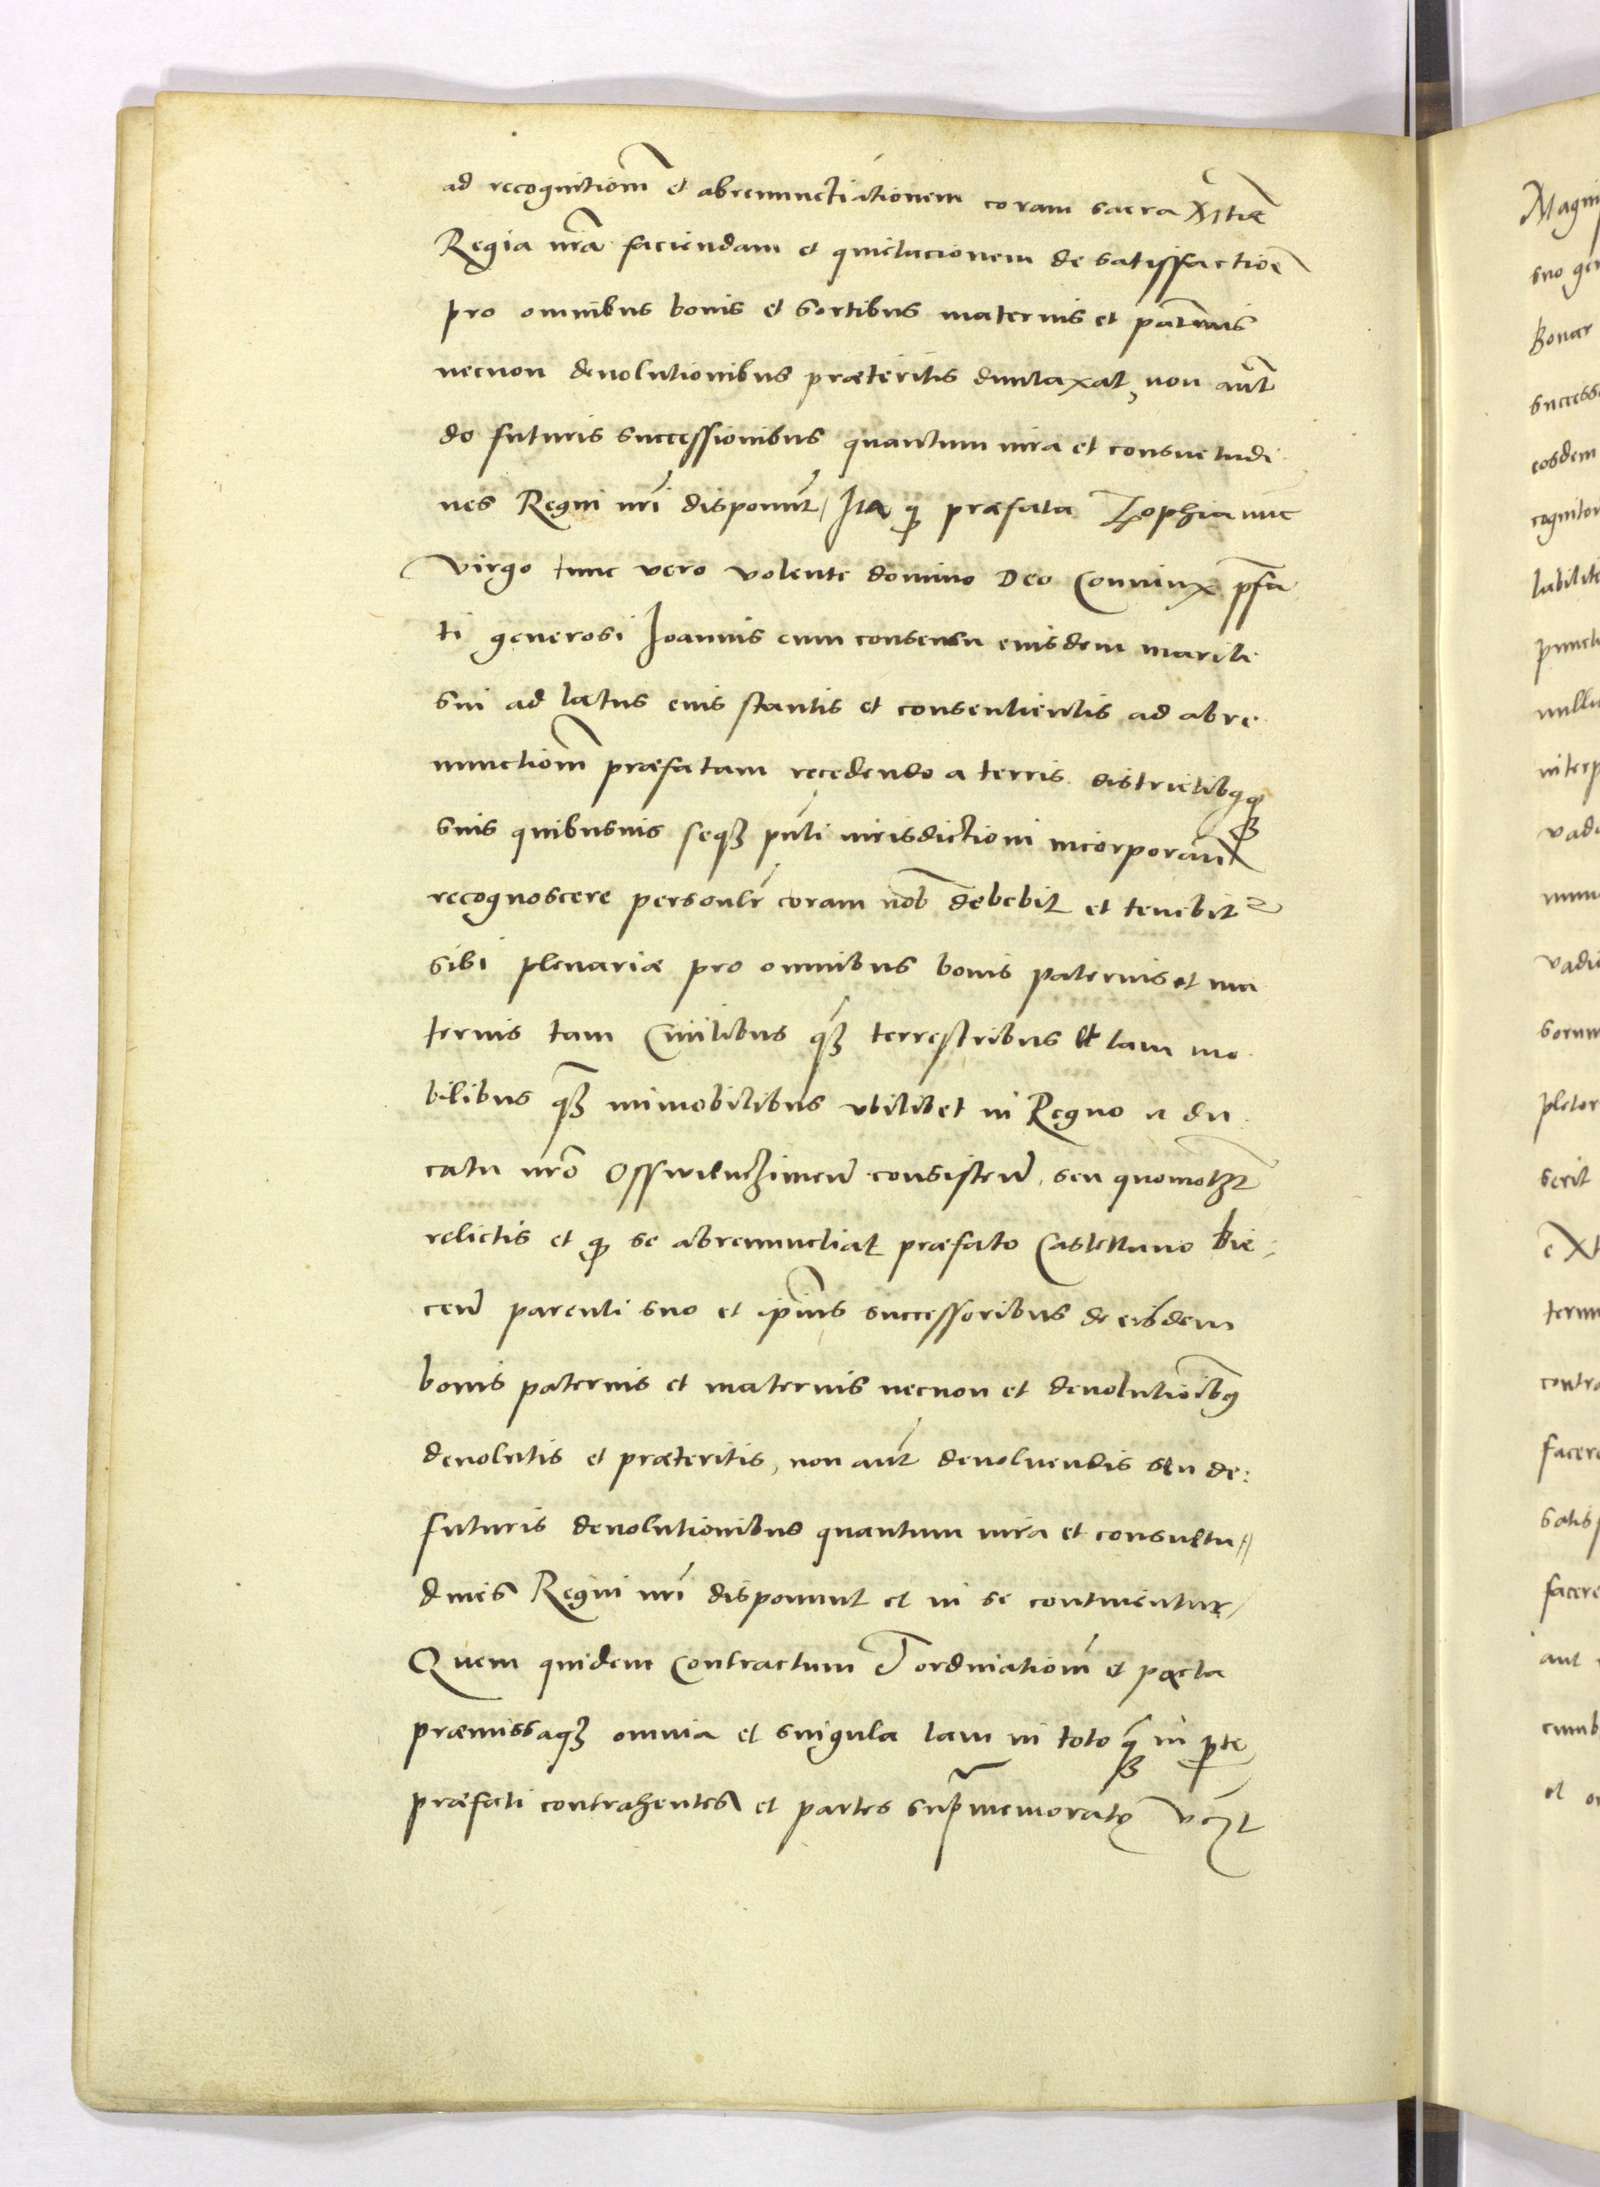 ad recognitiom̄ et abrenunctiationem coram sacra Mtāe
Regia nrā faciendam et quietacionem de satisfactioē
pro omnibus bonis et sortibus maternis et paternis
necnon devolutionibus præteritis duntaxat, non aūt
de futuris successionibus quantum iura et consuetudi
nes Regni nrī disponūt / Ita q̨ præfata Zophia nūc
virgo tunc vero volente domino Deo Coniunx p̄fa
ti generosi Ioannis cum consensu eiusdem mariti
sui ad latus eius stantis et consentientis ad abre
nunctiom̄ præfatam recedendo a terris districtibusq̨
suis quibusuis seqʒ pn̄ti iurisdictioni incorporan̄
recognoscere personlr̄ coram nōb debebit et tenebitr
sibi plenariæ pro omnibus bonis paternis et ma
ternis tam Ciuilibus qʒ̄ terrestribus et tam mo
bilibus qʒ̄ immobilibus vbilibet in Regno ac du
catu nrō Osswiencʒimen̄ consisten̄, seu quomołʒt
relictis et q̨ se abrenunctiat præfato Castellano Bie:
cen̄ parenti suo et ip̄ius successoribus de eisdem
bonis paternis et maternis necnon et devolutioībꝰ
devolutis et præteritis, non aūt devoluendis seu de:
futuris devolutionibus quantum iura et consuetu//
dines Regni nrī disponunt et in se continentur /
Quem quidem Contractum et ordinatiom̄ et pacta
præmissaqʒ omnia et singula tam in toto qʒ̄ in p̱te
præfati contrahentes et partes sup̄memoratę vcʒt